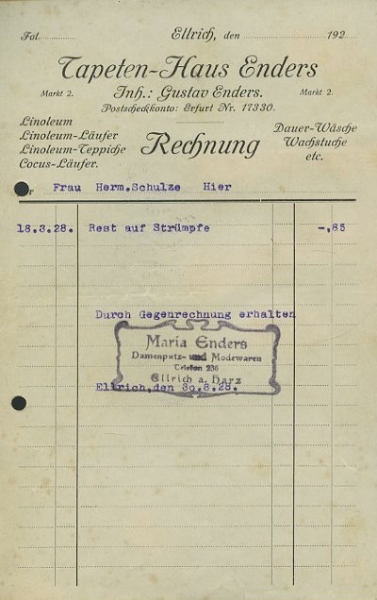 Fol.
Ellrich, den 192
Tapeten-Haus Enders
Markt 2. Inh.: Gustav Enders. Markt 2.
Postscheckkonto: Erfurt Nr. 17330.
Linoleum
Linoleum-Läufer
Linoleum-Teppiche
Cocus-Läufer.
Rechnung
Dauer-Wäsche
Wachstuche
etc.
Frau Herm.Schulze Hier
18.3.28. Rest auf Strümpfe -.85
Durch Gegenrechnung erhalten
Maria Enders
Damenputz- und Modewaren
Telefon 236
Ellrich a. Harz
Ellrich,den 30.8.28.